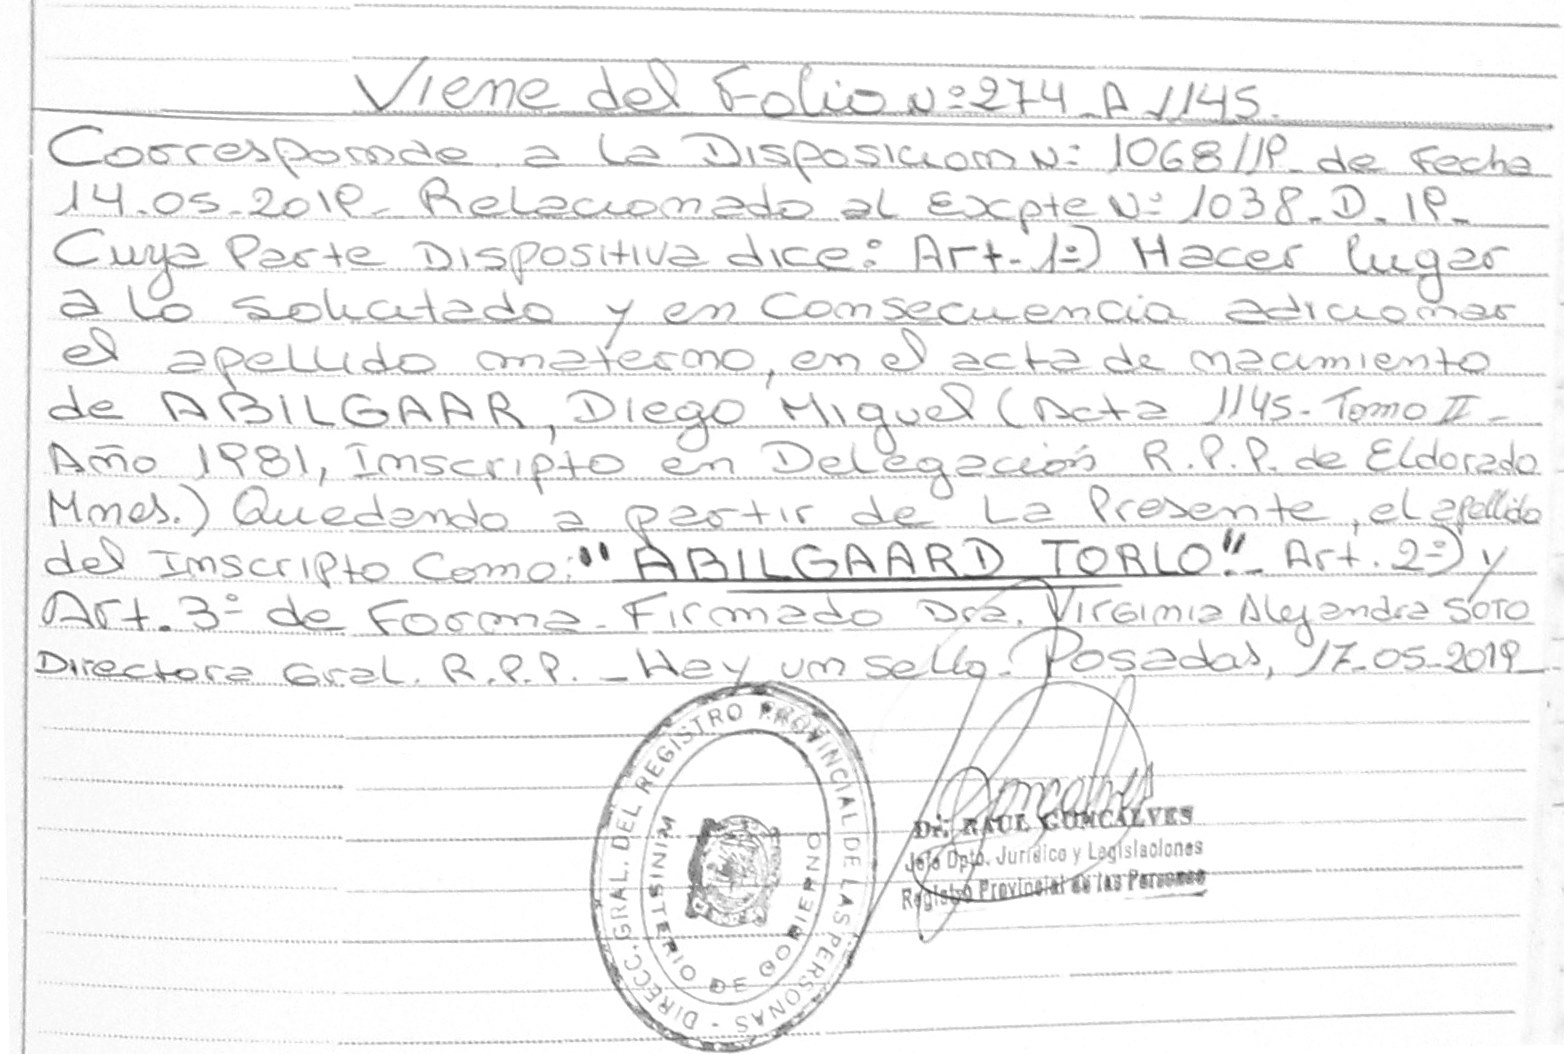 Viene del Folio Nº 274 A 1145.
Corresponde a la Disposicion Nº 1068/19 de Fecha
14-05-2019- Relacionado al Expte Nº 1038-D-19-
Cuya Parte Dispositiva dice: Art. 1º) Hacer lugar
a lo solicitado y en Consecuencia adicionar
el apellido materno, en el acta de nacimiento
de ABILGAAR, Diego Miguel (Acta 1145- Tomo II-
Año 1981, Inscripto en Delegación R.P.P. de Eldorado
Mnes.) Quedando a partir de La Presente, el apellido
del Inscripto Como: "ABILGAARD TORLO". Art. 2º) y
Art. 3º de Forma. Firmado Dra. Virginia Alejandra SOTO
Directora Gral. R.P.P. - Hay un sello. Posadas, 17-05-2019
DIRECC. GRAL. DEL REGISTRO PROVINCIAL DE LAS PERSONAS -
MINISTERIO DE GOBIERNO
Dr. RAUL GONCALVES
Jefe Dpto. Jurídico y Legislaciones
Registro Provincial de las Personas